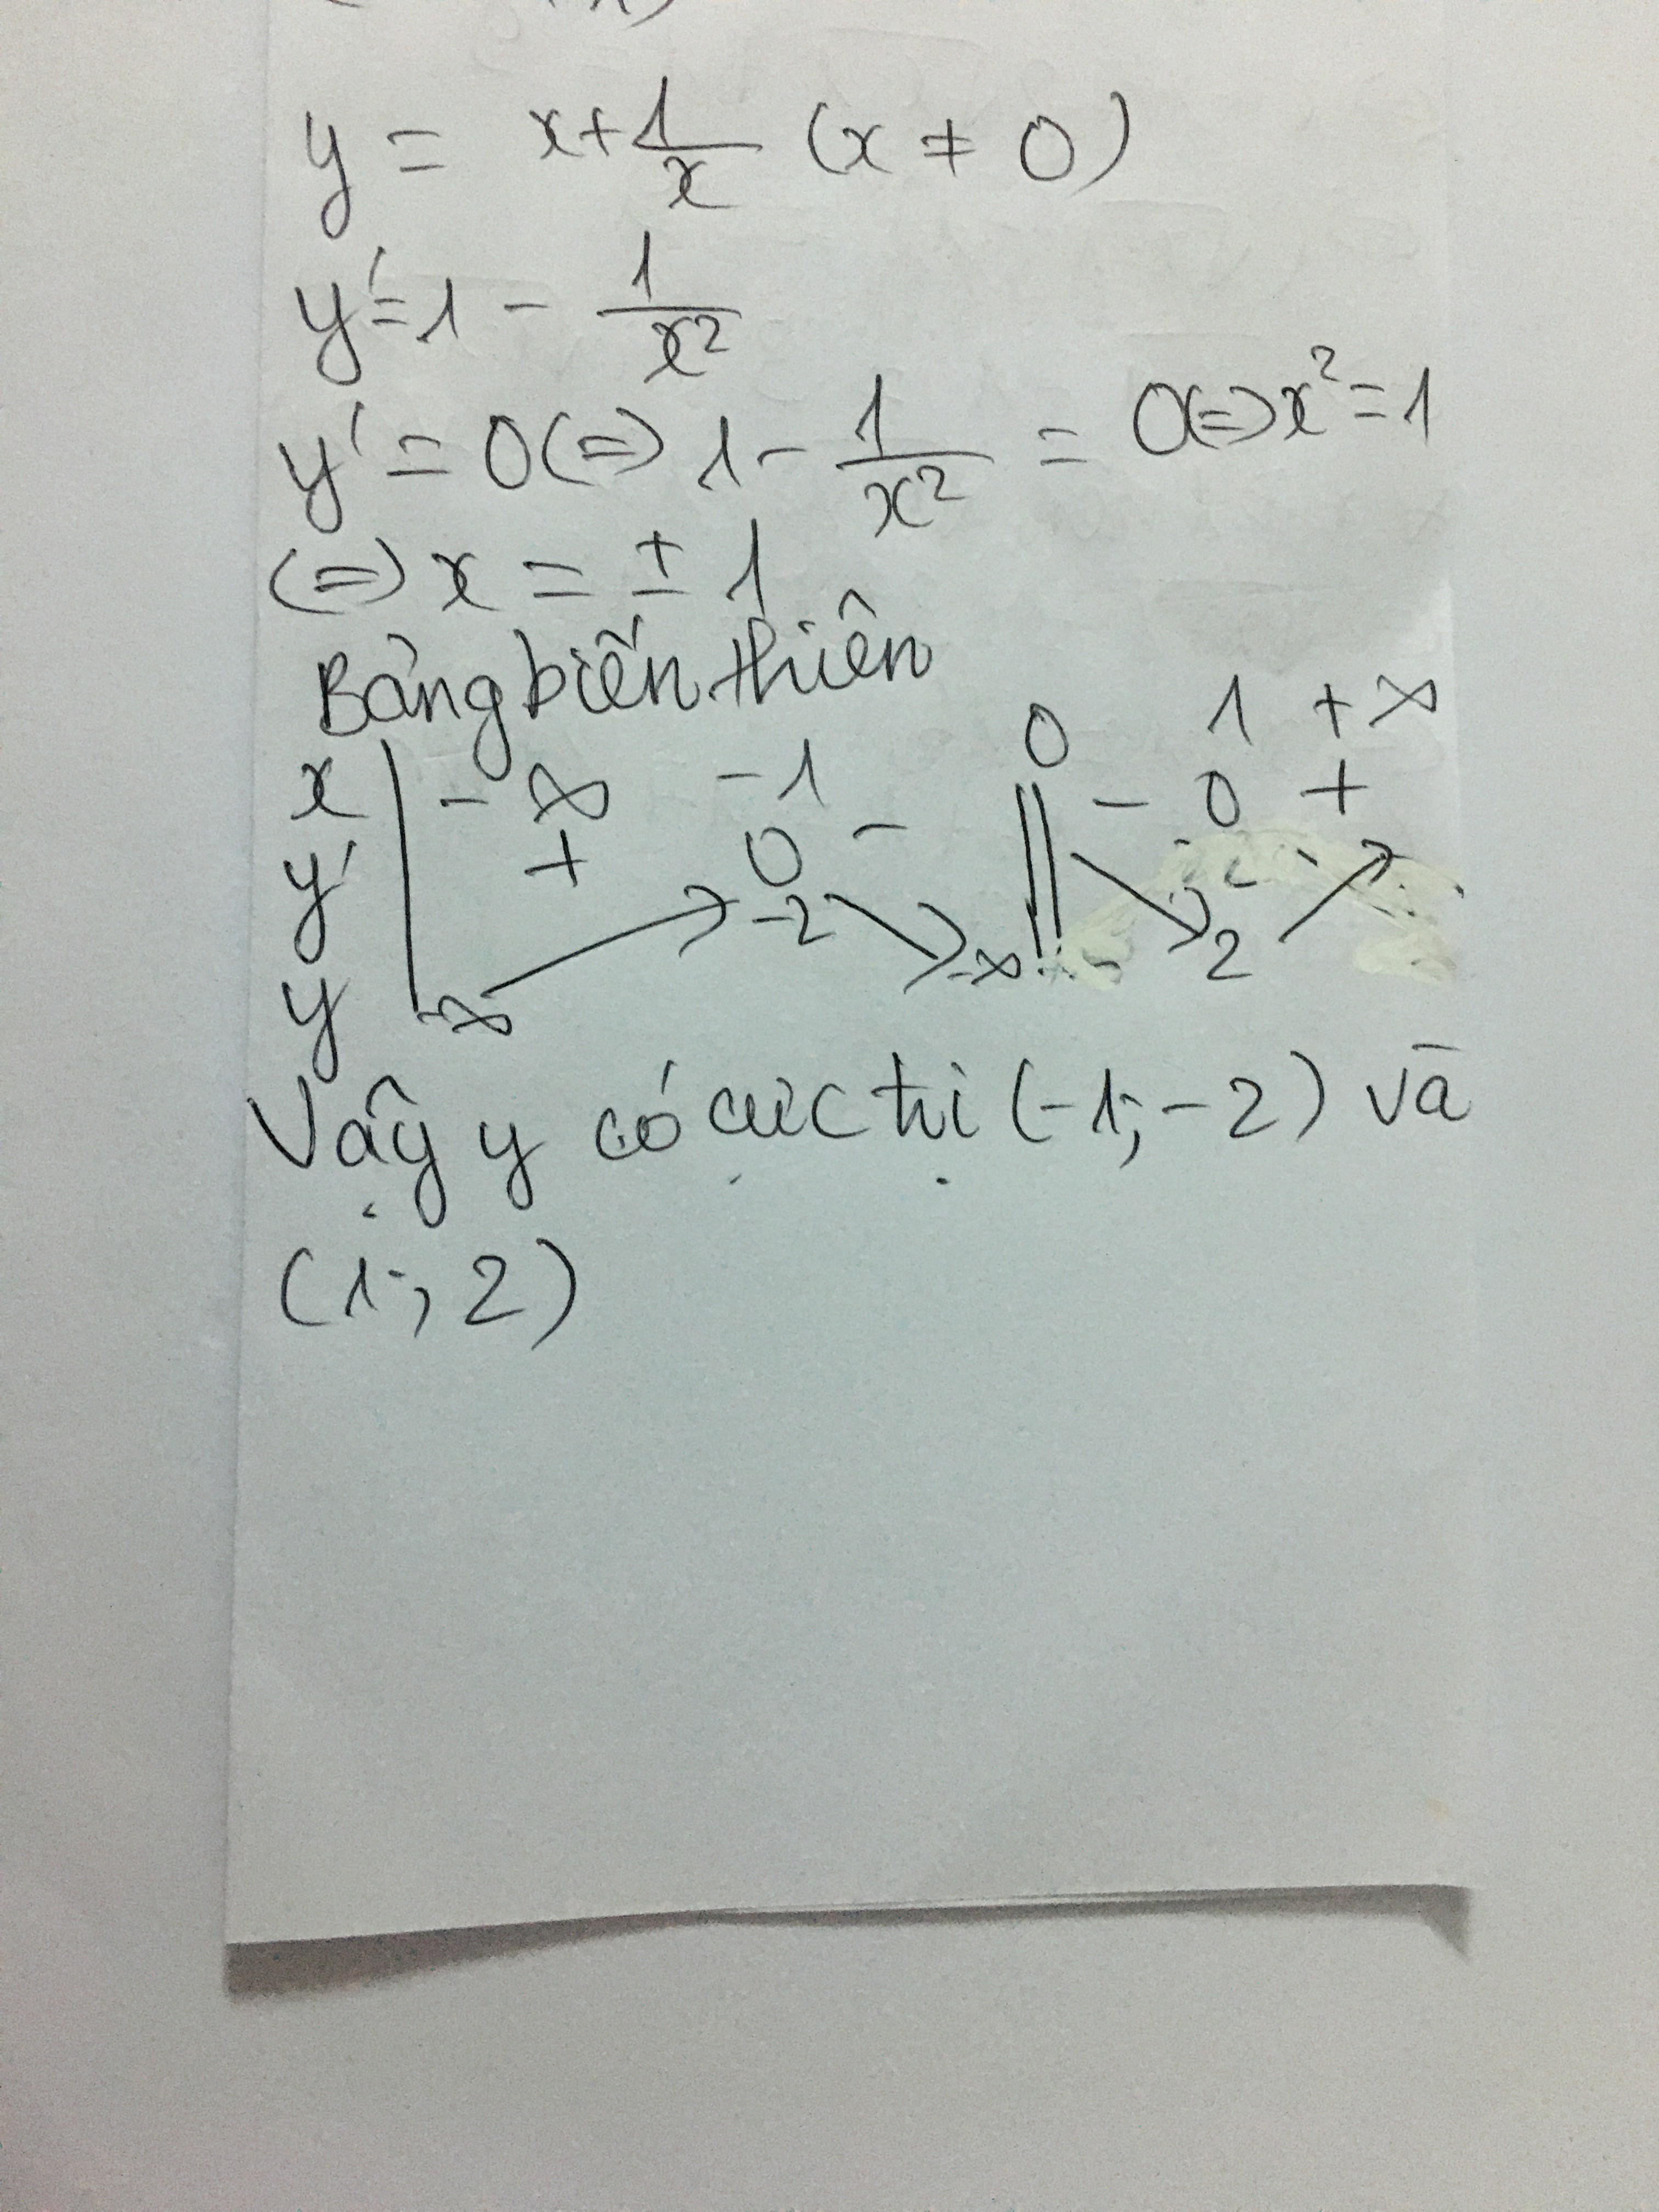 y = x + 1/x (x ≠ 0)
y' = 1 - 1/x²
y' = 0 (=) 1 - 1/x² = 0 (=) x² = 1
(=) x = ± 1
Bảng biến thiên
x | -∞ -1 0 1 +∞
y' | + 0 - || - 0 +
y | -∞ ↗ -2 ↘ -∞ || ↘ 2 ↗
Vậy y có cực trị (-1; -2) và
(1; 2)